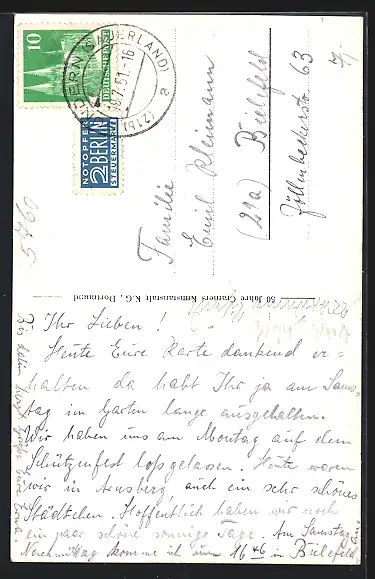 10
DEUTSCHE POST
(SAUERLAND)
19.7.51.-16
a
(21b)
NOTOPFER
2 BERLIN
STEUERMARKE
7,-
Familie
Emil Kleimann
(21a) Bielefeld
Jöllenbeckerstr. 63
50 Jahre Cramers Kunstanstalt K.G., Dortmund
Ihr Lieben!
Heute Eure Karte dankend er-
halten da habt Ihr ja am Sams-
tag im Garten lange ausgehalten.
Wir haben uns am Montag auf dem
Schützenfest losgelassen. Heute waren
wir in Arnsberg, auch ein sehr schönes
Städtchen. Hoffentlich haben wir noch
ein paar schöne sonnige Tage. Am Samstag
Nachmittag komme ich um 16 46 in Bielefeld
Bis dahin herzl. Grüße Eure